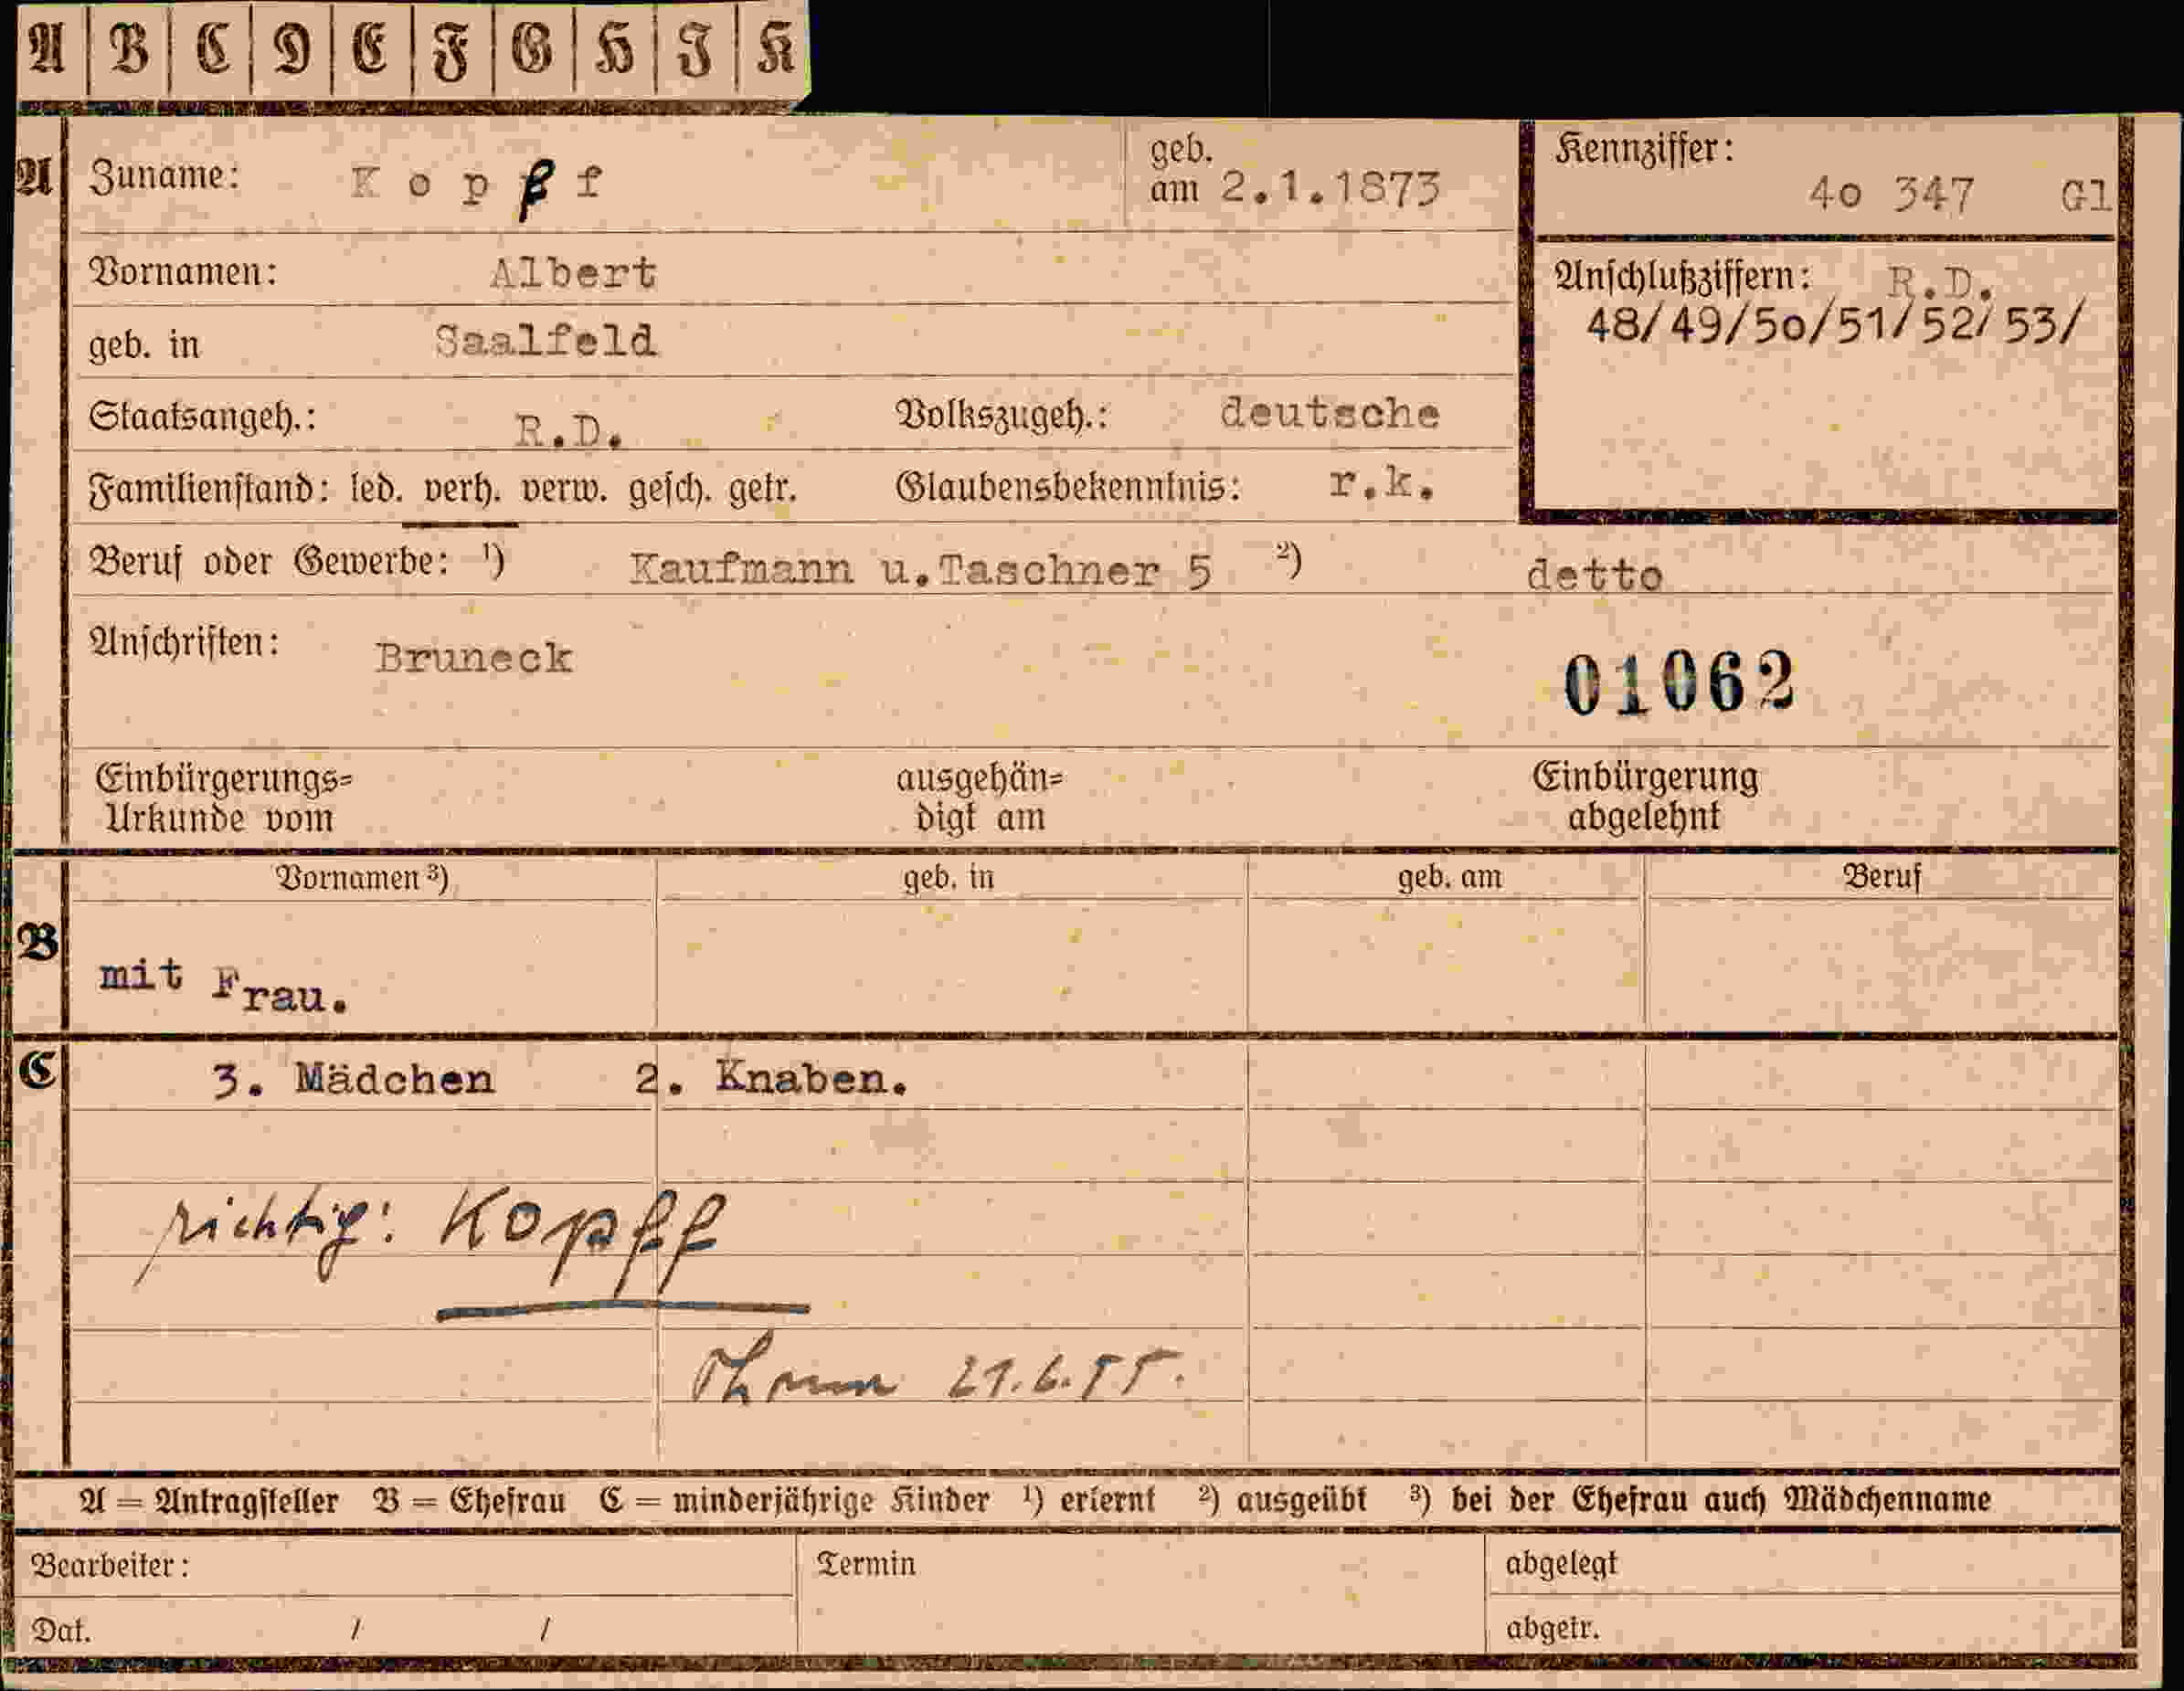 A B C D E F G H I K
A Zuname: Kopff geb. am 2.1.1873
Kennziffer: 4o 347 Gl
Vornamen: Albert
Anschlußziffern: R.D.
48/49/5o/51/52/53/
geb. in Saalfeld
Staatsangeh.: R.D. Volkszugeh.: deutsche
Familienstand: led. verh. verw. gesch. getr. Glaubensbekenntnis: r.k.
Beruf oder Gewerbe: ¹) Kaufmann u.Taschner 5 ²) detto
Anschriften: Bruneck
01062
Einbürgerungs= ausgehän= Einbürgerung
Urkunde vom digt am abgelehnt
Vornamen ³) geb. in geb. am Beruf
B
mit Frau.
C 3. Mädchen 2. Knaben.
richtig: Kopff
21.6.55.
A = Antragsteller B = Ehefrau C = minderjährige Kinder ¹) erlernt ²) ausgeübt ³) bei der Ehefrau auch Mädchenname
Bearbeiter: Termin abgelegt
Dat. / / abgetr.